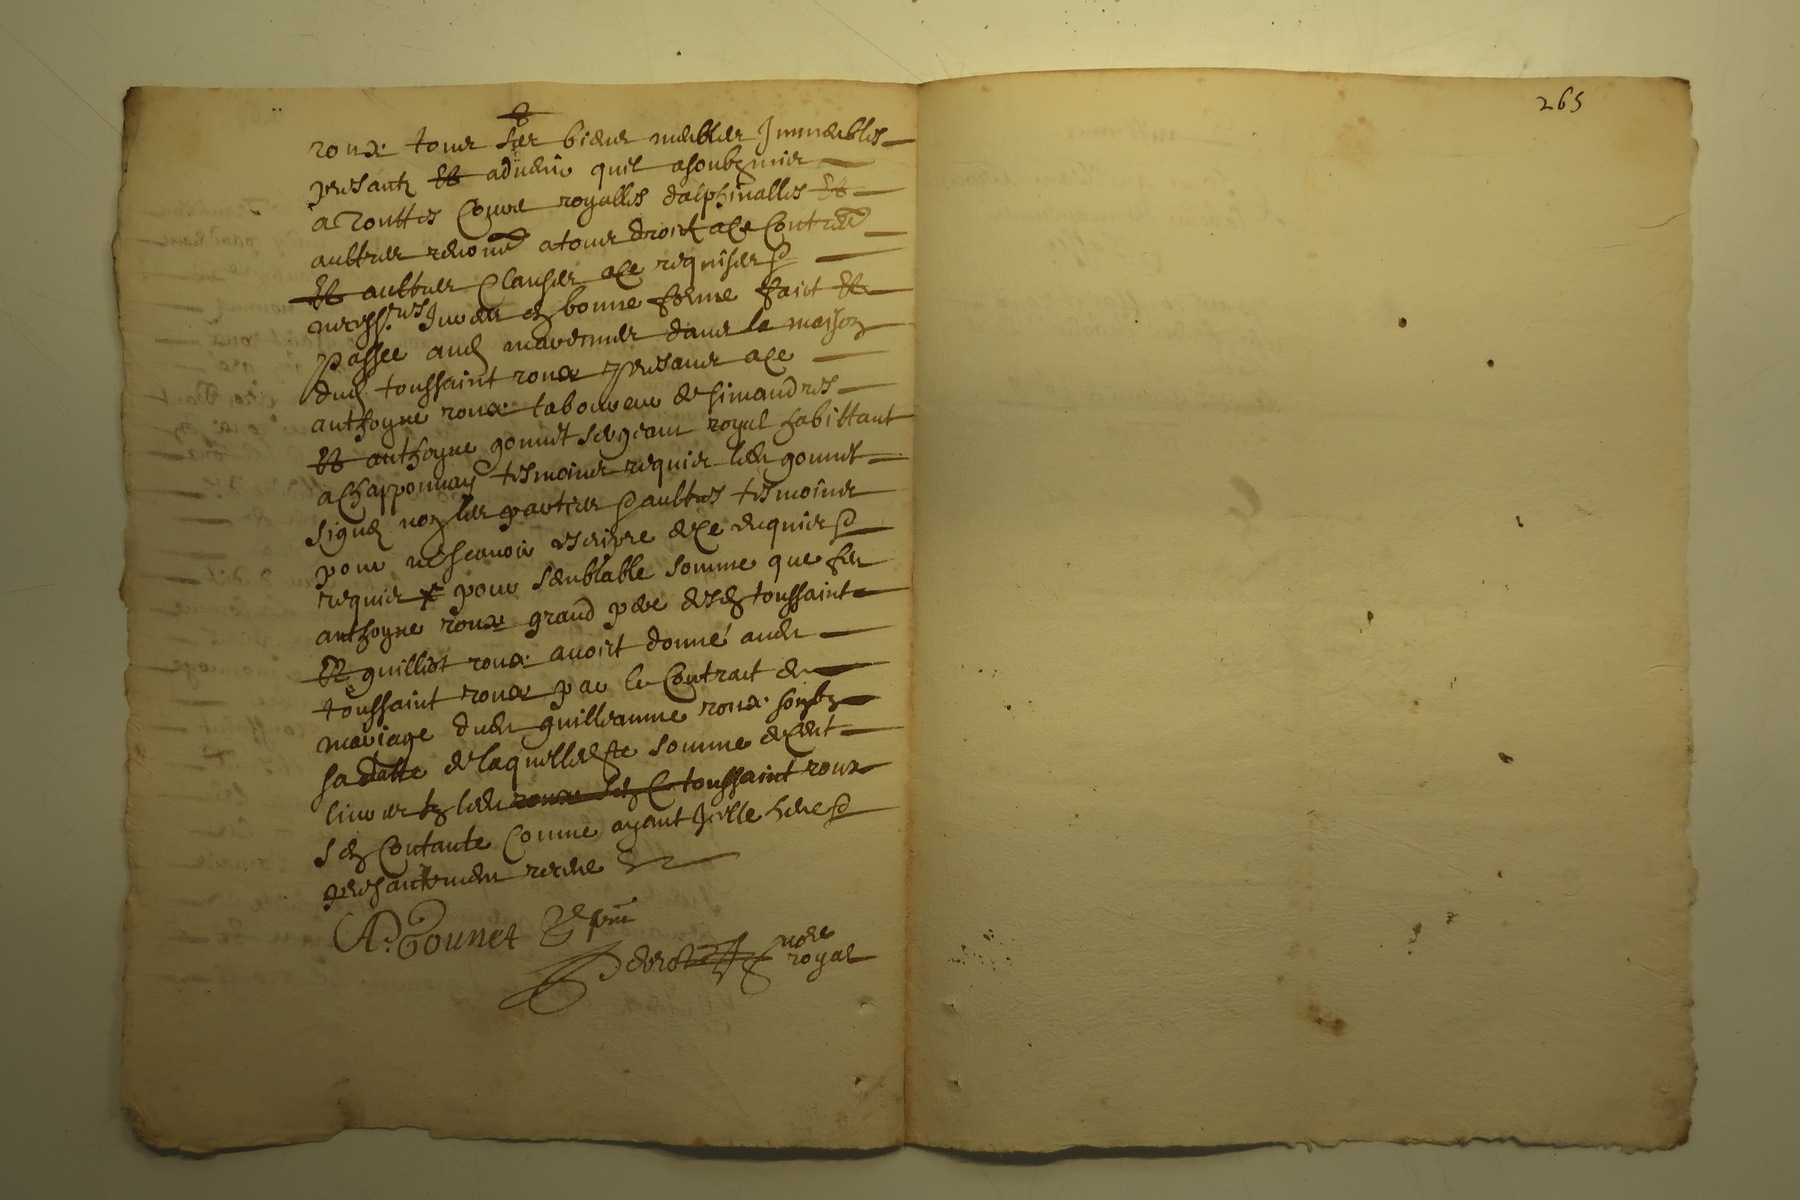 265
roux tous ses biens meubles Immeubles
presantz Et advenir quil a soubzmis
a Touttes Cours royalles dalphinalles Et
aultres renoncé a tous droictz a ce Contre
Et aultres Clauses a ce requises
necess.res Jures en bonne forme faict Et
Passee aud marennes dans la maison
dud toussaint roux presans a ce
anthoyne roux laboureur de simandres
Et anthoyne gonnet sergeant royal habittant
a Chapponnay tesmoins requis led gonnet
signé non les parties aultres tesmoins
pour ne scavoir escripre de ce enquis
requis pour semblable somme que feu
anthoyne roux grand pere desd toussaint
Et guilliot roux avoict donné aud
toussaint roux par le Contract de
mariage dud guilleaume roux soubz
sa datte de laquelle somme de Cent
livres led toussaint roux
sen Contante Comme ayant Icelle heue
presantement receue
A. Gounet pnt
nore
royal